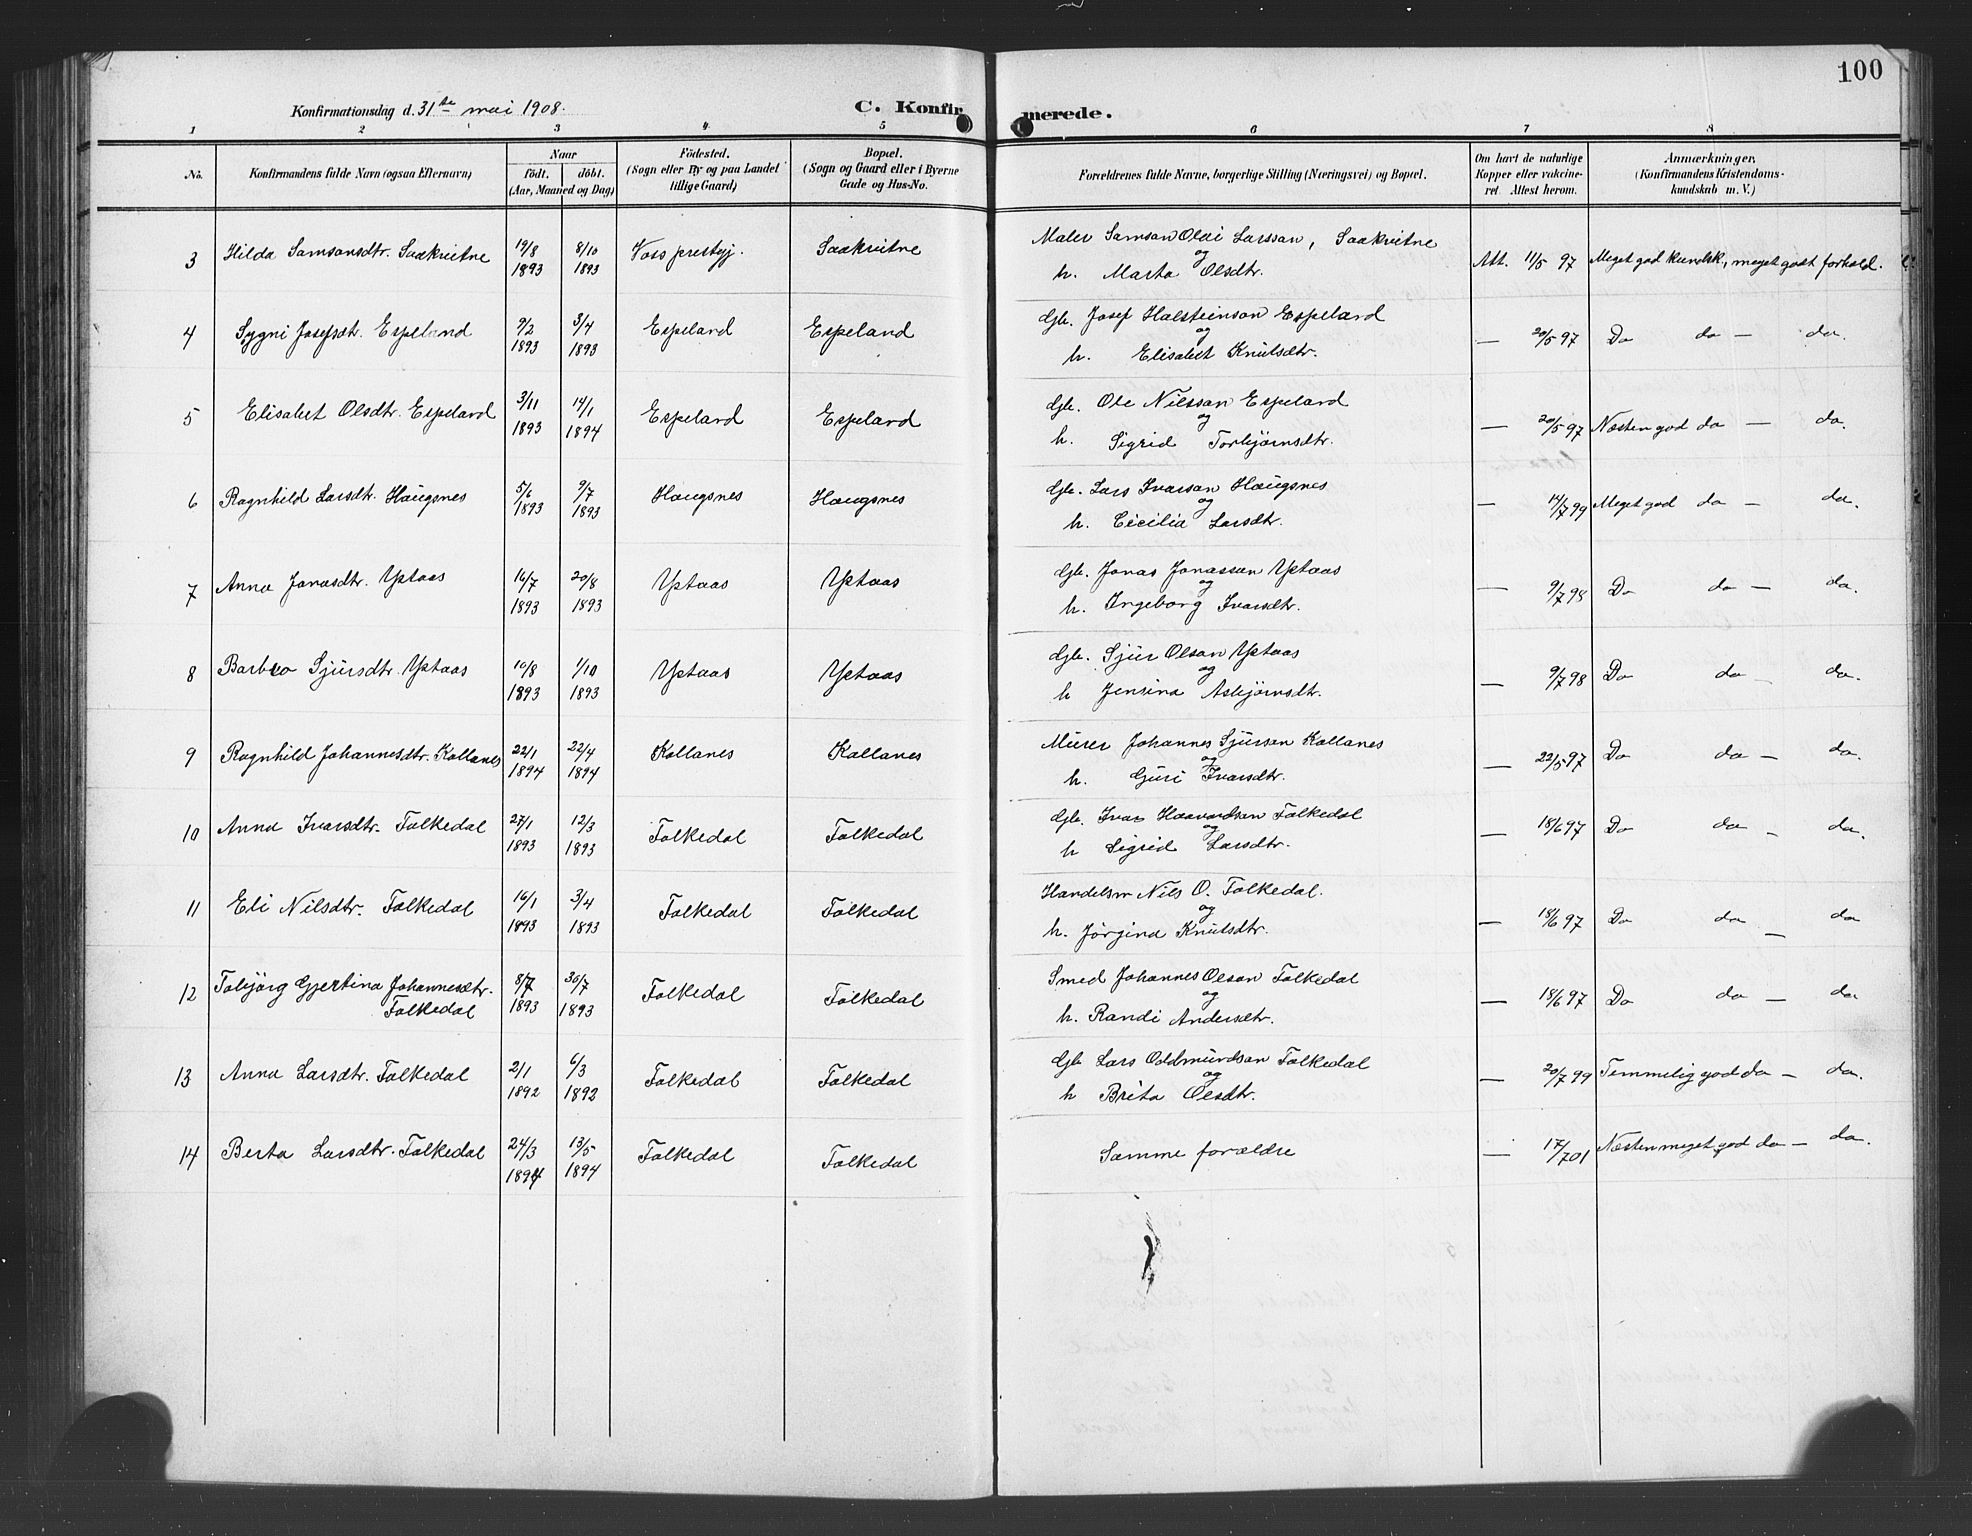 100
Konfirmationsdag d. 31te mai 1908. C. Konfirmerede.
1 2 3 4 5 6 7 8
No. Konfirmandens fulde Navn (ogsaa Efternavn) Naar födt. döbt. (Aar, Maaned og Dag) Födested. (Sogn eller By og paa Landet tillige Gaard) Bopæl. (Sogn og Gaard eller i Byerne Gade og Hus-No. Forældrenes fulde Navne, borgerlige Stilling (Næringsvei) og Bopæl. Om havt de naturlige Kopper eller vakcineret. Attest herom. Anmærkninger, (Konfirmandens Kristendomskundskab m. V.)
3 Hilda Samsonsdtr. Saakvitne 19/8 1893 8/10 1893 Voss prestgj. Saakvitne Maler Samson Olai Larsson, Saakvitne
og
h. Marta Olsdtr. Att. 11/5 97 Meget god kundsk., meget godt forhold.
4 Sygni Josefsdtr. Espeland 9/2 1893 3/4 1893 Espeland Espeland Gb. Josef Halsteinson Espeland
og
h. Elisabet Knutsdtr. — 20/5 97 Do do — do.
5 Elisabet Olsdtr. Espeland 3/11 1893 14/1 1894 Espeland Espeland Gb. Ole Nilsson Espeland
og
h. Sigrid Torbjørnsdtr. — 20/5 97 Næsten god do — do.
6 Ragnhild Larsdtr. Haugsnes 5/6 1893 9/7 1893 Haugsnes Haugsnes Gb. Lars Ivarson Haugsnes
og
h. Cecilia Larsdtr. — 14/7 99 Meget god do — do.
7 Anna Jonasdtr. Ystaas 16/7 1893 20/8 1893 Ystaas Ystaas Gb. Jonas Jonasson Ystaas
og
h. Ingeborg Ivarsdtr. — 9/7 98 Do do — do.
8 Barbro Sjursdtr. Ystaas 10/8 1893 1/10 1893 Ystaas Ystaas Gb. Sjur Olson Ystaas
og
h Jensina Asbjørnsdtr. — 9/7 98 Do do - do.
9 Ragnhild Johannesdtr. Kollanes 22/1 1894 22/4 1894 Kollanes Kollanes Murer Johannes Sjurson Kollanes
og
h. Guri Ivarsdtr. — 22/5 97 Do do — do.
10 Anna Ivarsdtr. Folkedal 27/1 1893 12/3 1893 Folkedal Folkedal Gb. Ivar Haavardson Folkedal
og
h Sigrid Larsdtr. — 18/6 97 Do do — do.
11 Eli Nilsdtr. Folkedal 16/1 1893 3/4 1893 Folkedal Folkedal Handelsm Nils O. Folkedal.
og
h. Jørgina Knutsdtr. — 18/6 97 Do do — do
12 Tobjörg Gjertina Johannesdtr. Folkedal 8/7 1893 30/7 1893 Folkedal Folkedal Smed Johannes Olson Folkedal
og
h. Randi Andersdtr. — 18/6 97 Do do — do
13 Anna Larsdtr. Folkedal 2/1 1892 6/3 1892 Folkedal Folkedal Gb. Lars Oddmundson Folkedal
og
h Brita Olsdtr. — 20/7 99 Temmelig god do — do.
14 Berta Larsdtr. Folkedal 24/3 1894 13/5 1894 Folkedal Folkedal Samme forældre — 17/7 01 Næsten meget god do — do.